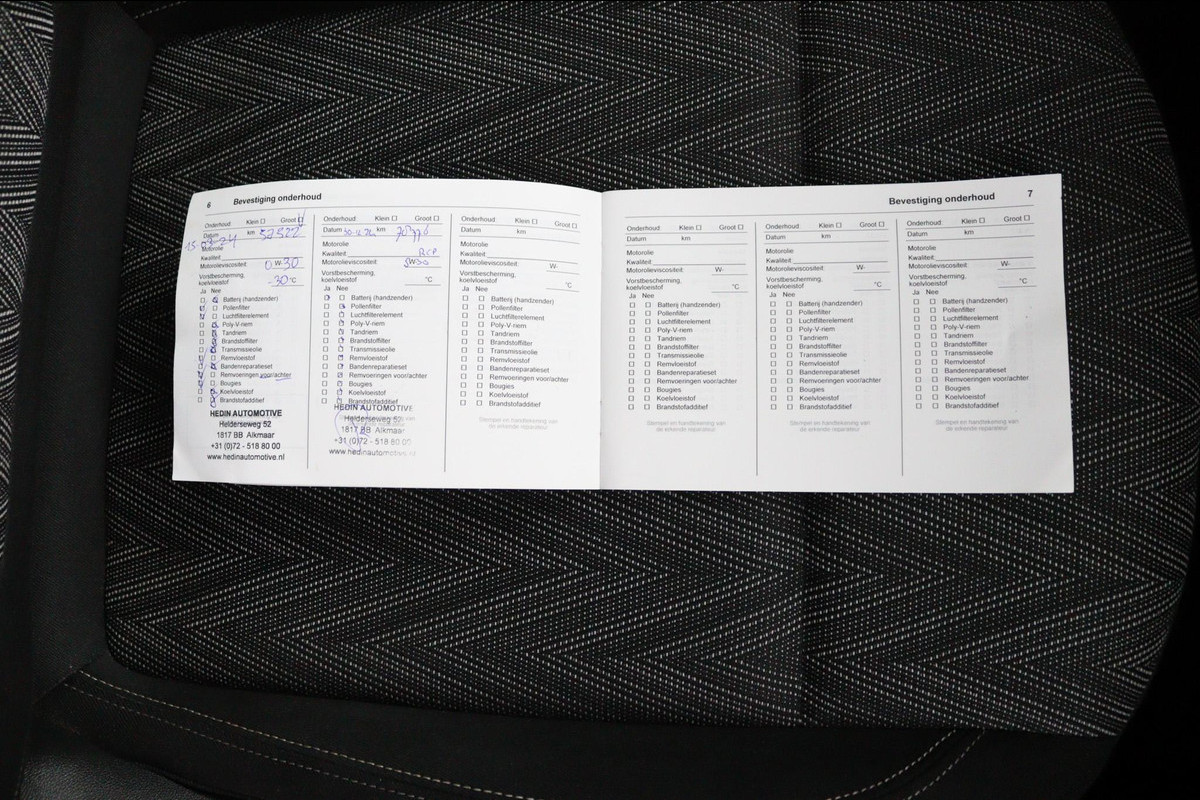 6 Bevestiging onderhoud
Onderhoud: Klein ☐ Groot ☑
Datum km 52522
15-03-24
Motorolie
Kwaliteit
Motorolieviscositeit 0 W-30
Vorstbescherming,
koelvloeistof -30 °C
Ja Nee
Batterij (handzender)
Pollenfilter
Luchtfilterelement
Poly-V-riem
Tandriem
Brandstoffilter
Transmissieolie
Remvloeistof
Bandenreparatieset
Remvoeringen voor/achter
Bougies
Koelvloeistof
Brandstofadditief
HEDIN AUTOMOTIVE
Helderseweg 52
1817 BB Alkmaar
+31 (0)72 - 518 80 00
www.hedinautomotive.nl
Onderhoud: Klein ☐ Groot ☐
Datum km
Motorolie
Kwaliteit
Motorolieviscositeit 5W30
Vorstbescherming,
koelvloeistof °C
Ja Nee
Batterij (handzender)
Pollenfilter
Luchtfilterelement
Poly-V-riem
Tandriem
Brandstoffilter
Transmissieolie
Remvloeistof
Bandenreparatieset
Remvoeringen voor/achter
Bougies
Koelvloeistof
Brandstofadditief
HEDIN AUTOMOTIVE
Helderseweg 52
1817 BB Alkmaar
+31 (0)72 - 518 80 00
www.hedinautomotive.nl
Onderhoud: Klein ☐ Groot ☐
Datum km
Motorolie
Kwaliteit
Motorolieviscositeit W-
Vorstbescherming,
koelvloeistof °C
Ja Nee
☐ ☐ Batterij (handzender)
☐ ☐ Pollenfilter
☐ ☐ Luchtfilterelement
☐ ☐ Poly-V-riem
☐ ☐ Tandriem
☐ ☐ Brandstoffilter
☐ ☐ Transmissieolie
☐ ☐ Remvloeistof
☐ ☐ Bandenreparatieset
☐ ☐ Remvoeringen voor/achter
☐ ☐ Bougies
☐ ☐ Koelvloeistof
☐ ☐ Brandstofadditief
Stempel en handtekening van
de erkende reparateur
Bevestiging onderhoud 7
Onderhoud: Klein ☐ Groot ☐
Datum km
Motorolie
Kwaliteit
Motorolieviscositeit W-
Vorstbescherming,
koelvloeistof °C
Ja Nee
☐ ☐ Batterij (handzender)
☐ ☐ Pollenfilter
☐ ☐ Luchtfilterelement
☐ ☐ Poly-V-riem
☐ ☐ Tandriem
☐ ☐ Brandstoffilter
☐ ☐ Transmissieolie
☐ ☐ Remvloeistof
☐ ☐ Bandenreparatieset
☐ ☐ Remvoeringen voor/achter
☐ ☐ Bougies
☐ ☐ Koelvloeistof
☐ ☐ Brandstofadditief
Stempel en handtekening van
de erkende reparateur
Onderhoud: Klein ☐ Groot ☐
Datum km
Motorolie
Kwaliteit
Motorolieviscositeit W-
Vorstbescherming,
koelvloeistof °C
Ja Nee
☐ ☐ Batterij (handzender)
☐ ☐ Pollenfilter
☐ ☐ Luchtfilterelement
☐ ☐ Poly-V-riem
☐ ☐ Tandriem
☐ ☐ Brandstoffilter
☐ ☐ Transmissieolie
☐ ☐ Remvloeistof
☐ ☐ Bandenreparatieset
☐ ☐ Remvoeringen voor/achter
☐ ☐ Bougies
☐ ☐ Koelvloeistof
☐ ☐ Brandstofadditief
Stempel en handtekening van
de erkende reparateur
Onderhoud: Klein ☐ Groot ☐
Datum km
Motorolie
Kwaliteit
Motorolieviscositeit W-
Vorstbescherming,
koelvloeistof °C
Ja Nee
☐ ☐ Batterij (handzender)
☐ ☐ Pollenfilter
☐ ☐ Luchtfilterelement
☐ ☐ Poly-V-riem
☐ ☐ Tandriem
☐ ☐ Brandstoffilter
☐ ☐ Transmissieolie
☐ ☐ Remvloeistof
☐ ☐ Bandenreparatieset
☐ ☐ Remvoeringen voor/achter
☐ ☐ Bougies
☐ ☐ Koelvloeistof
☐ ☐ Brandstofadditief
Stempel en handtekening van
de erkende reparateur